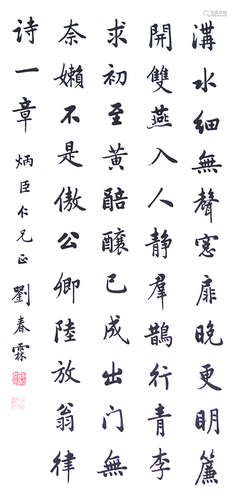 溝水細無聲窓扉晚更明簾
開雙燕入人靜羣鵲行青李
求初至黃醅釀已成出门無
奈嬾不是傲公卿陸放翁律
詩一章 炳臣仁兄正 劉春霖